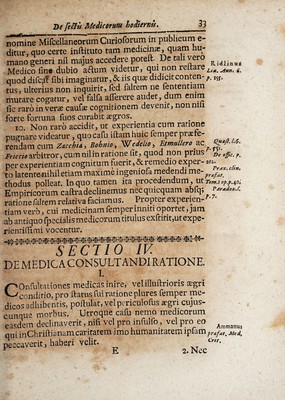 De sectis Medicorum hodiernis. 33
nomine Miscellaneorum Curiosorum in publicum e-
ditur, quo certe instituto tam medicinæ, quam hu-
mano generi nil majus accedere potest. De tali vero
Medico sine dubio actum videtur, qui non restare
quod discat sibi imaginatur, & iis quæ didicit conten-
tus, ulterius non inquirit, sed saltem ne sententiam
mutare cogatur, vel falsa asserere audet, dum enim
sic raro in veræ causæ cognitionem devenit, non nisi
forte fortuna suos curabit ægros.
Ridlinus
Lin. Ann. 6.
p. 195.
10. Non raro accidit, ut experientia cum ratione
pugnare videatur, quo casu istam huic semper præfe-
rendam cum Zacchia, Bohnio, Wedelio, Etmullero ac
Fritio arbitror, cum nil in ratione sit, quod non prius
per experientiam cognitum fuerit, & remedio exper-
to latente nihil etiam maxime ingeniosa medendi me-
thodus polleat. In quo tamen ita procedendum, ut
Empiricorum castra declinemus nec quicquam absq;
ratione saltem relativa faciamus. Propter experien-
tiam vero, cui medicinam semper inniti oportet, jam
ab antiquo specialis medicorum titulus exstitit, ut exper-
ientissimi vocentur.
Quæst. l. 6.
De offic. p.
Prax. clin.
præfat.
Paradox. l.
p. 7.
SECTIO IV.
DE MEDICA CONSULTANDI RATIONE.
I.
Consultationes medicas inire, vel illustrioris ægri
conditio, pro status sui ratione plures semper me-
dicos adhibentis, postulat, vel periculosus ægri cujus-
cunque morbus. Utroque casu nemo medicorum
easdem declinaverit, nisi vel pro insulso, vel pro eo
qui in Christianam caritatem imo humanitatem ipsam
peccaverit, haberi velit.
Ammanus
præfat. Med.
Crit.
E 2. Nec